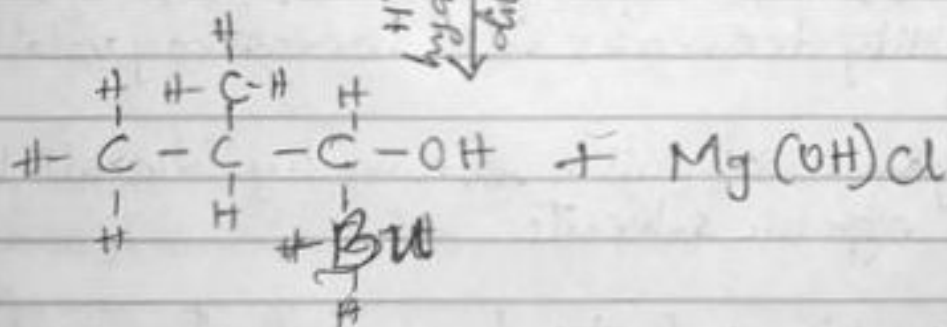 H
H H-C-H H
H-C-C-C-OH + Mg(OH)Cl
H H Bu
H